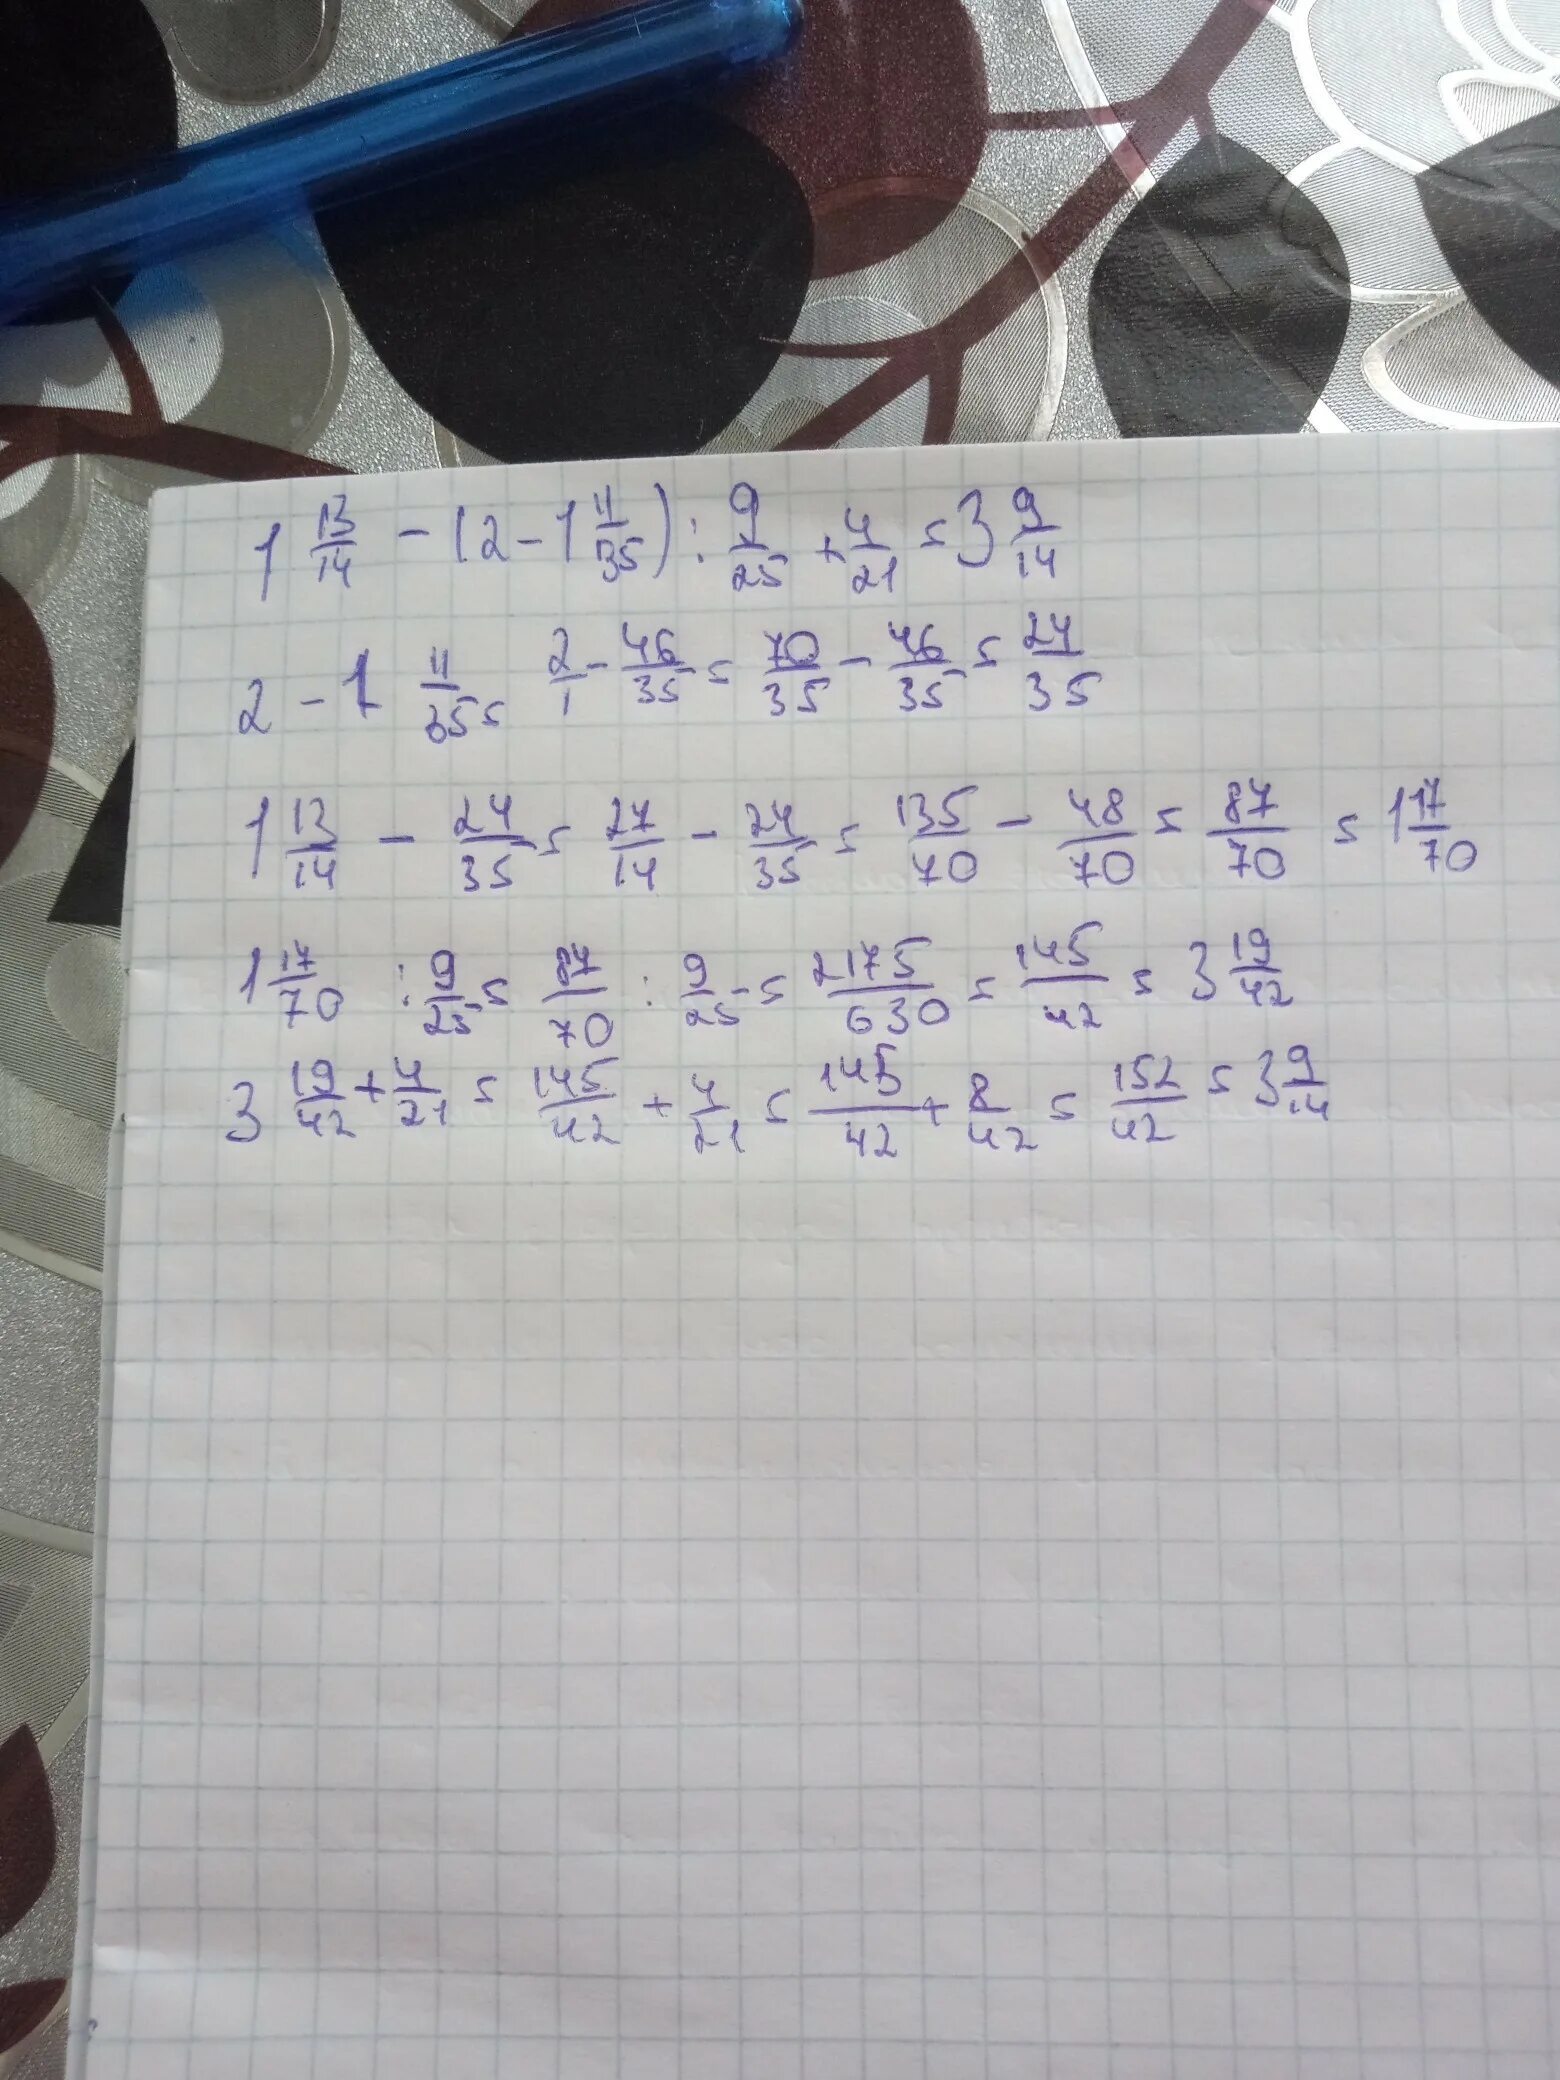 1 13/14 - (2 - 1 11/35) : 9/25 + 4/21 = 3 9/14
2 - 1 11/35 = 2/1 - 46/35 = 70/35 - 46/35 = 24/35
1 13/14 - 24/35 = 27/14 - 24/35 = 135/70 - 48/70 = 87/70 = 1 17/70
1 17/70 : 9/25 = 87/70 : 9/25 = 2175/630 = 145/42 = 3 19/42
3 19/42 + 4/21 = 145/42 + 4/21 = 145/42 + 8/42 = 152/42 = 3 9/14